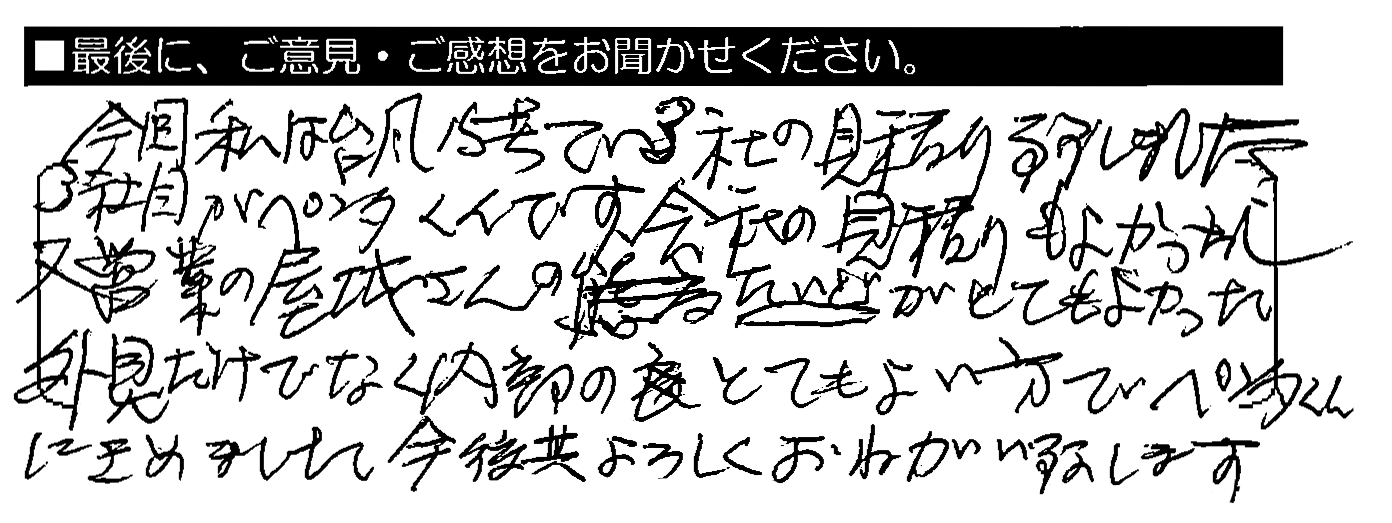 ■最後に、ご意見・ご感想をお聞かせください。
今回私は台風15号で3社の見積り致しました
3社目がペンタくんです会社の見積りもよかったし
又営業の屋城さんのたいどがとてもよかった
外見だけでなく内部の とてもよい方でペンタくん
にきめました今後共よろしくおねがい致します